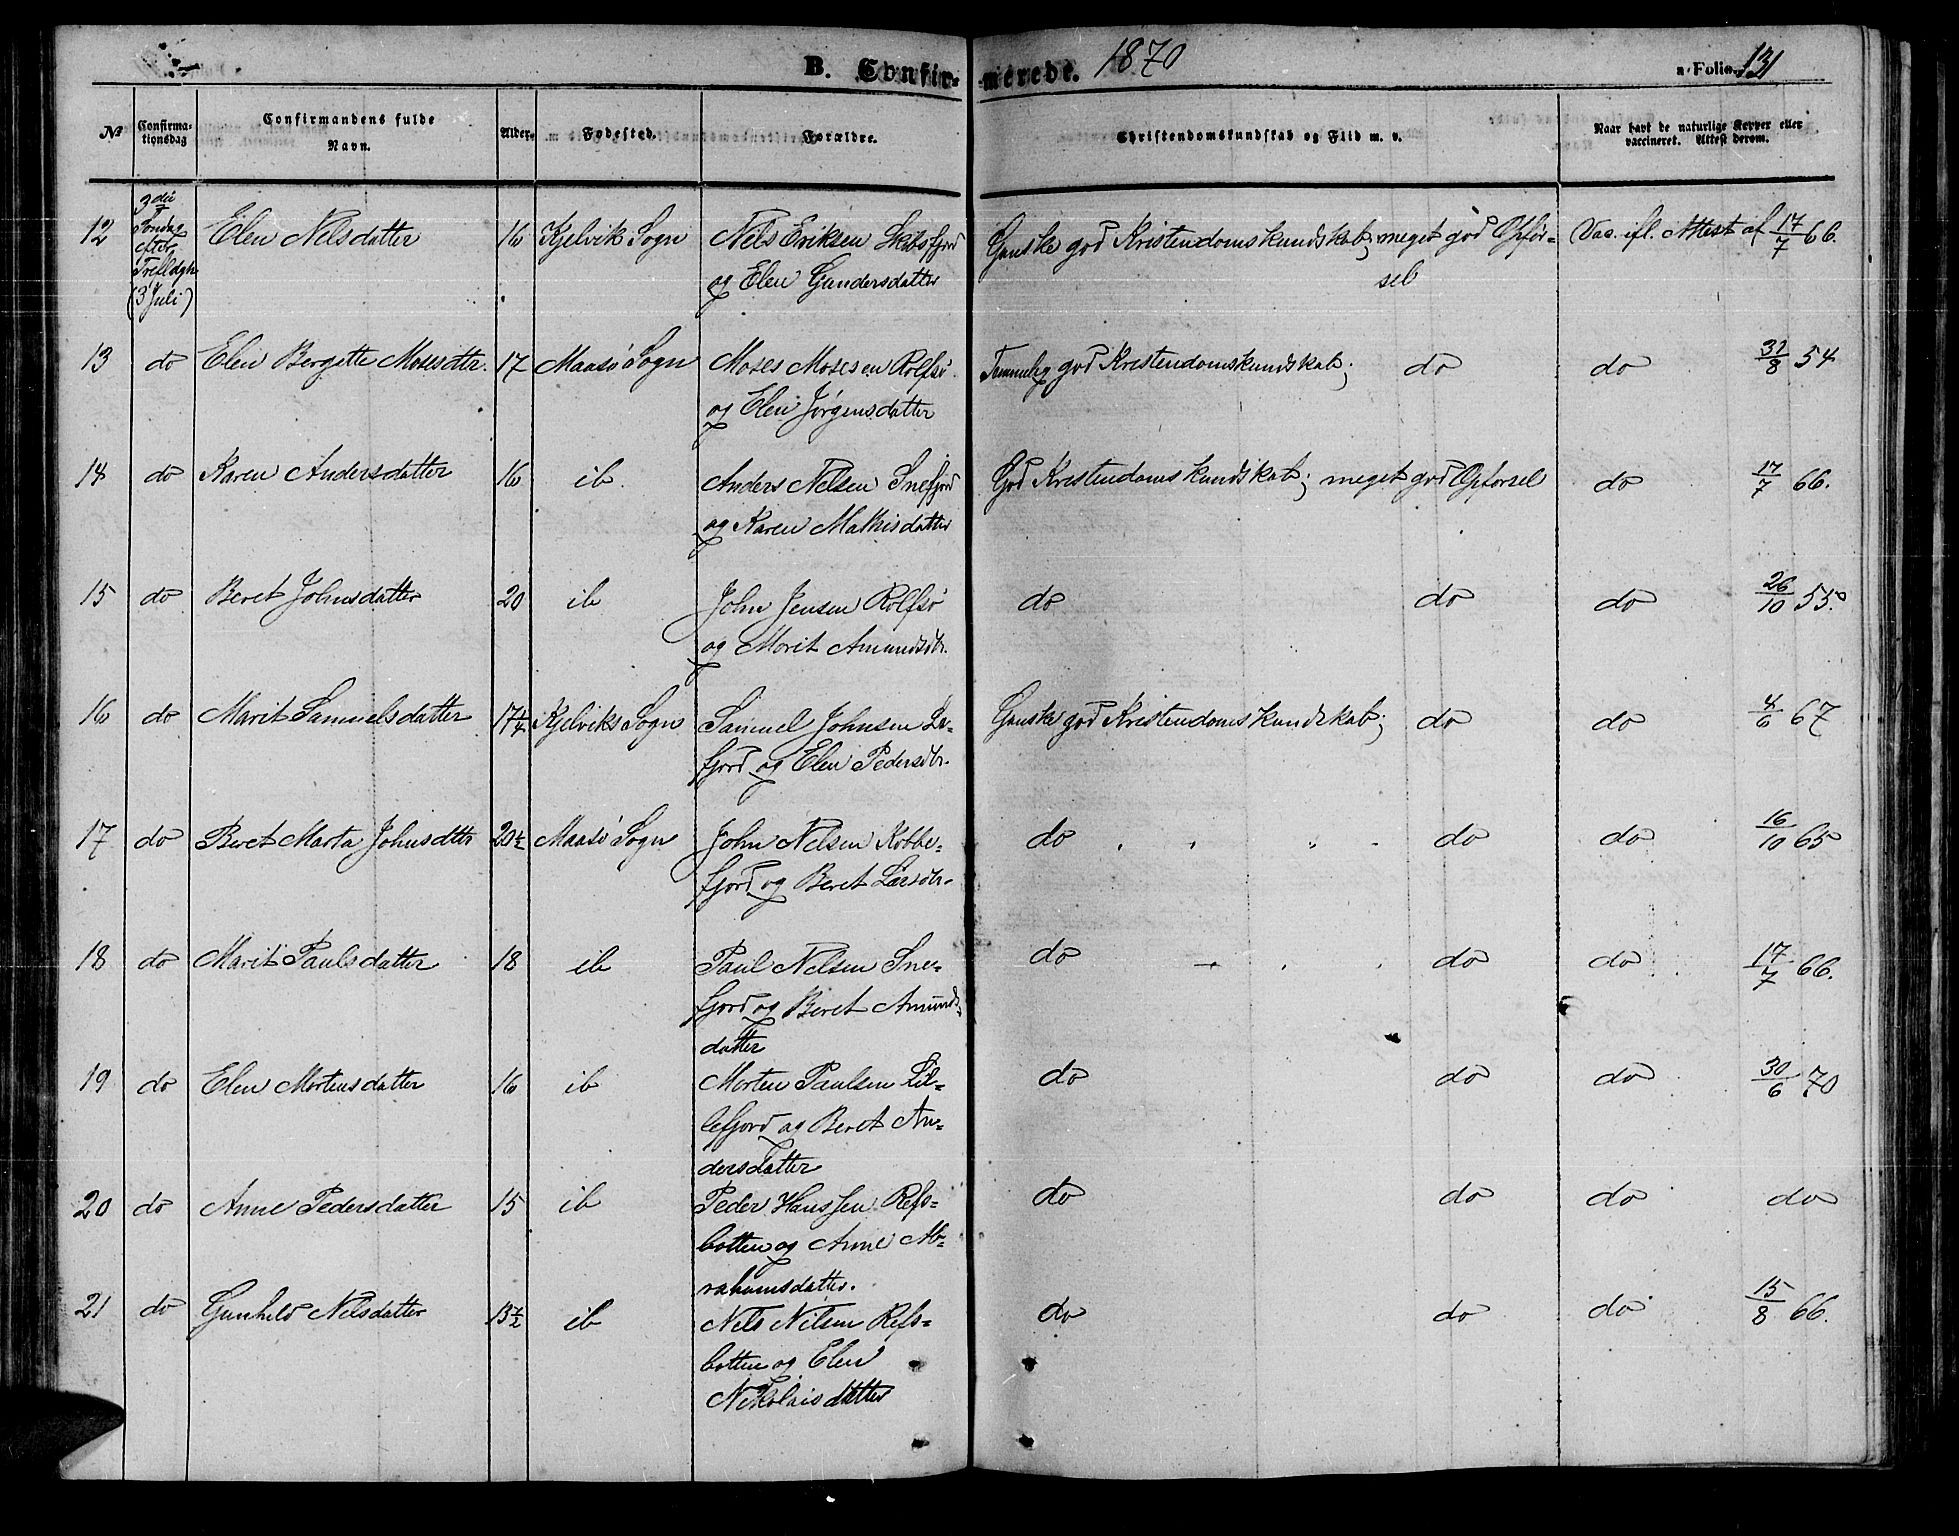 B. Confirmerede. 1870
a Folio 131
No
Confirmationsdag
Confirmandens fulde Navn.
Alder.
Fødested.
Forældre.
Christendomskundskab og Flid m. v.
Naar havt de naturlige Kopper eller vaccineret. Attest derom.
12 3die Søndag efter Trefldgh (3 Juli) Elen Nelsdatter 16 Kjelvik Sogn Nels Eriksen Skibsfjord Ganske god Kristendomskundskab; meget god Opfør- Vac. ifl. Attest af 17/7 66.
og Elen Gundersdatter sel
13 do Elen Bergette Mosesdtr. 17 Maasø Sogn Moses Mosesen Rolfsø Temmelig god Kristendomskundskab; do do 31/8 54
og Elen Jørgensdatter
14 do Karen Andersdatter 16 ib. Anders Nelsen Snefjord God Kristendomskundskab; meget god Opførsel do 17/7 66.
og Karen Mathisdatter
15 do Beret Johnsdatter 20 ib John Jensen Rolfsø do do do 26/10 55.
og Marit Amundsdtr.
16 do Marit Samuelsdatter 17 1/4 Kjelviks Sogn Samuel Johnsen La- Ganske god Kristendomskundskab; do do 4/6 67
fjord og Elen Pedersdtr.
17 do Beret Marta Johnsdttr 20 1/2 Maasø Sogn John Nelsen Kobbe- do do do 16/10 65
fjord og Beret Larsdtr.
18 do Marit Paulsdatter 18 ib Paul Nelsen Sne- do do do 17/7 66.
fjord og Beret Amunds-
datter
19 do Elen Mortensdatter 16 ib Morten Paulsen Lil- do do do 30/6 70
lefjord og Beret An-
dersdatter
20 do Anne Pedersdatter 15 ib Peder Hanssen Refs- do do do do
botten og Anne Ab-
rahamsdatter.
21 do Gunhild Nelsdatter 13 1/2 ib Nels Nilsen Refs- do do do 15/8 66.
botten og Elen
Nikolaisdatter